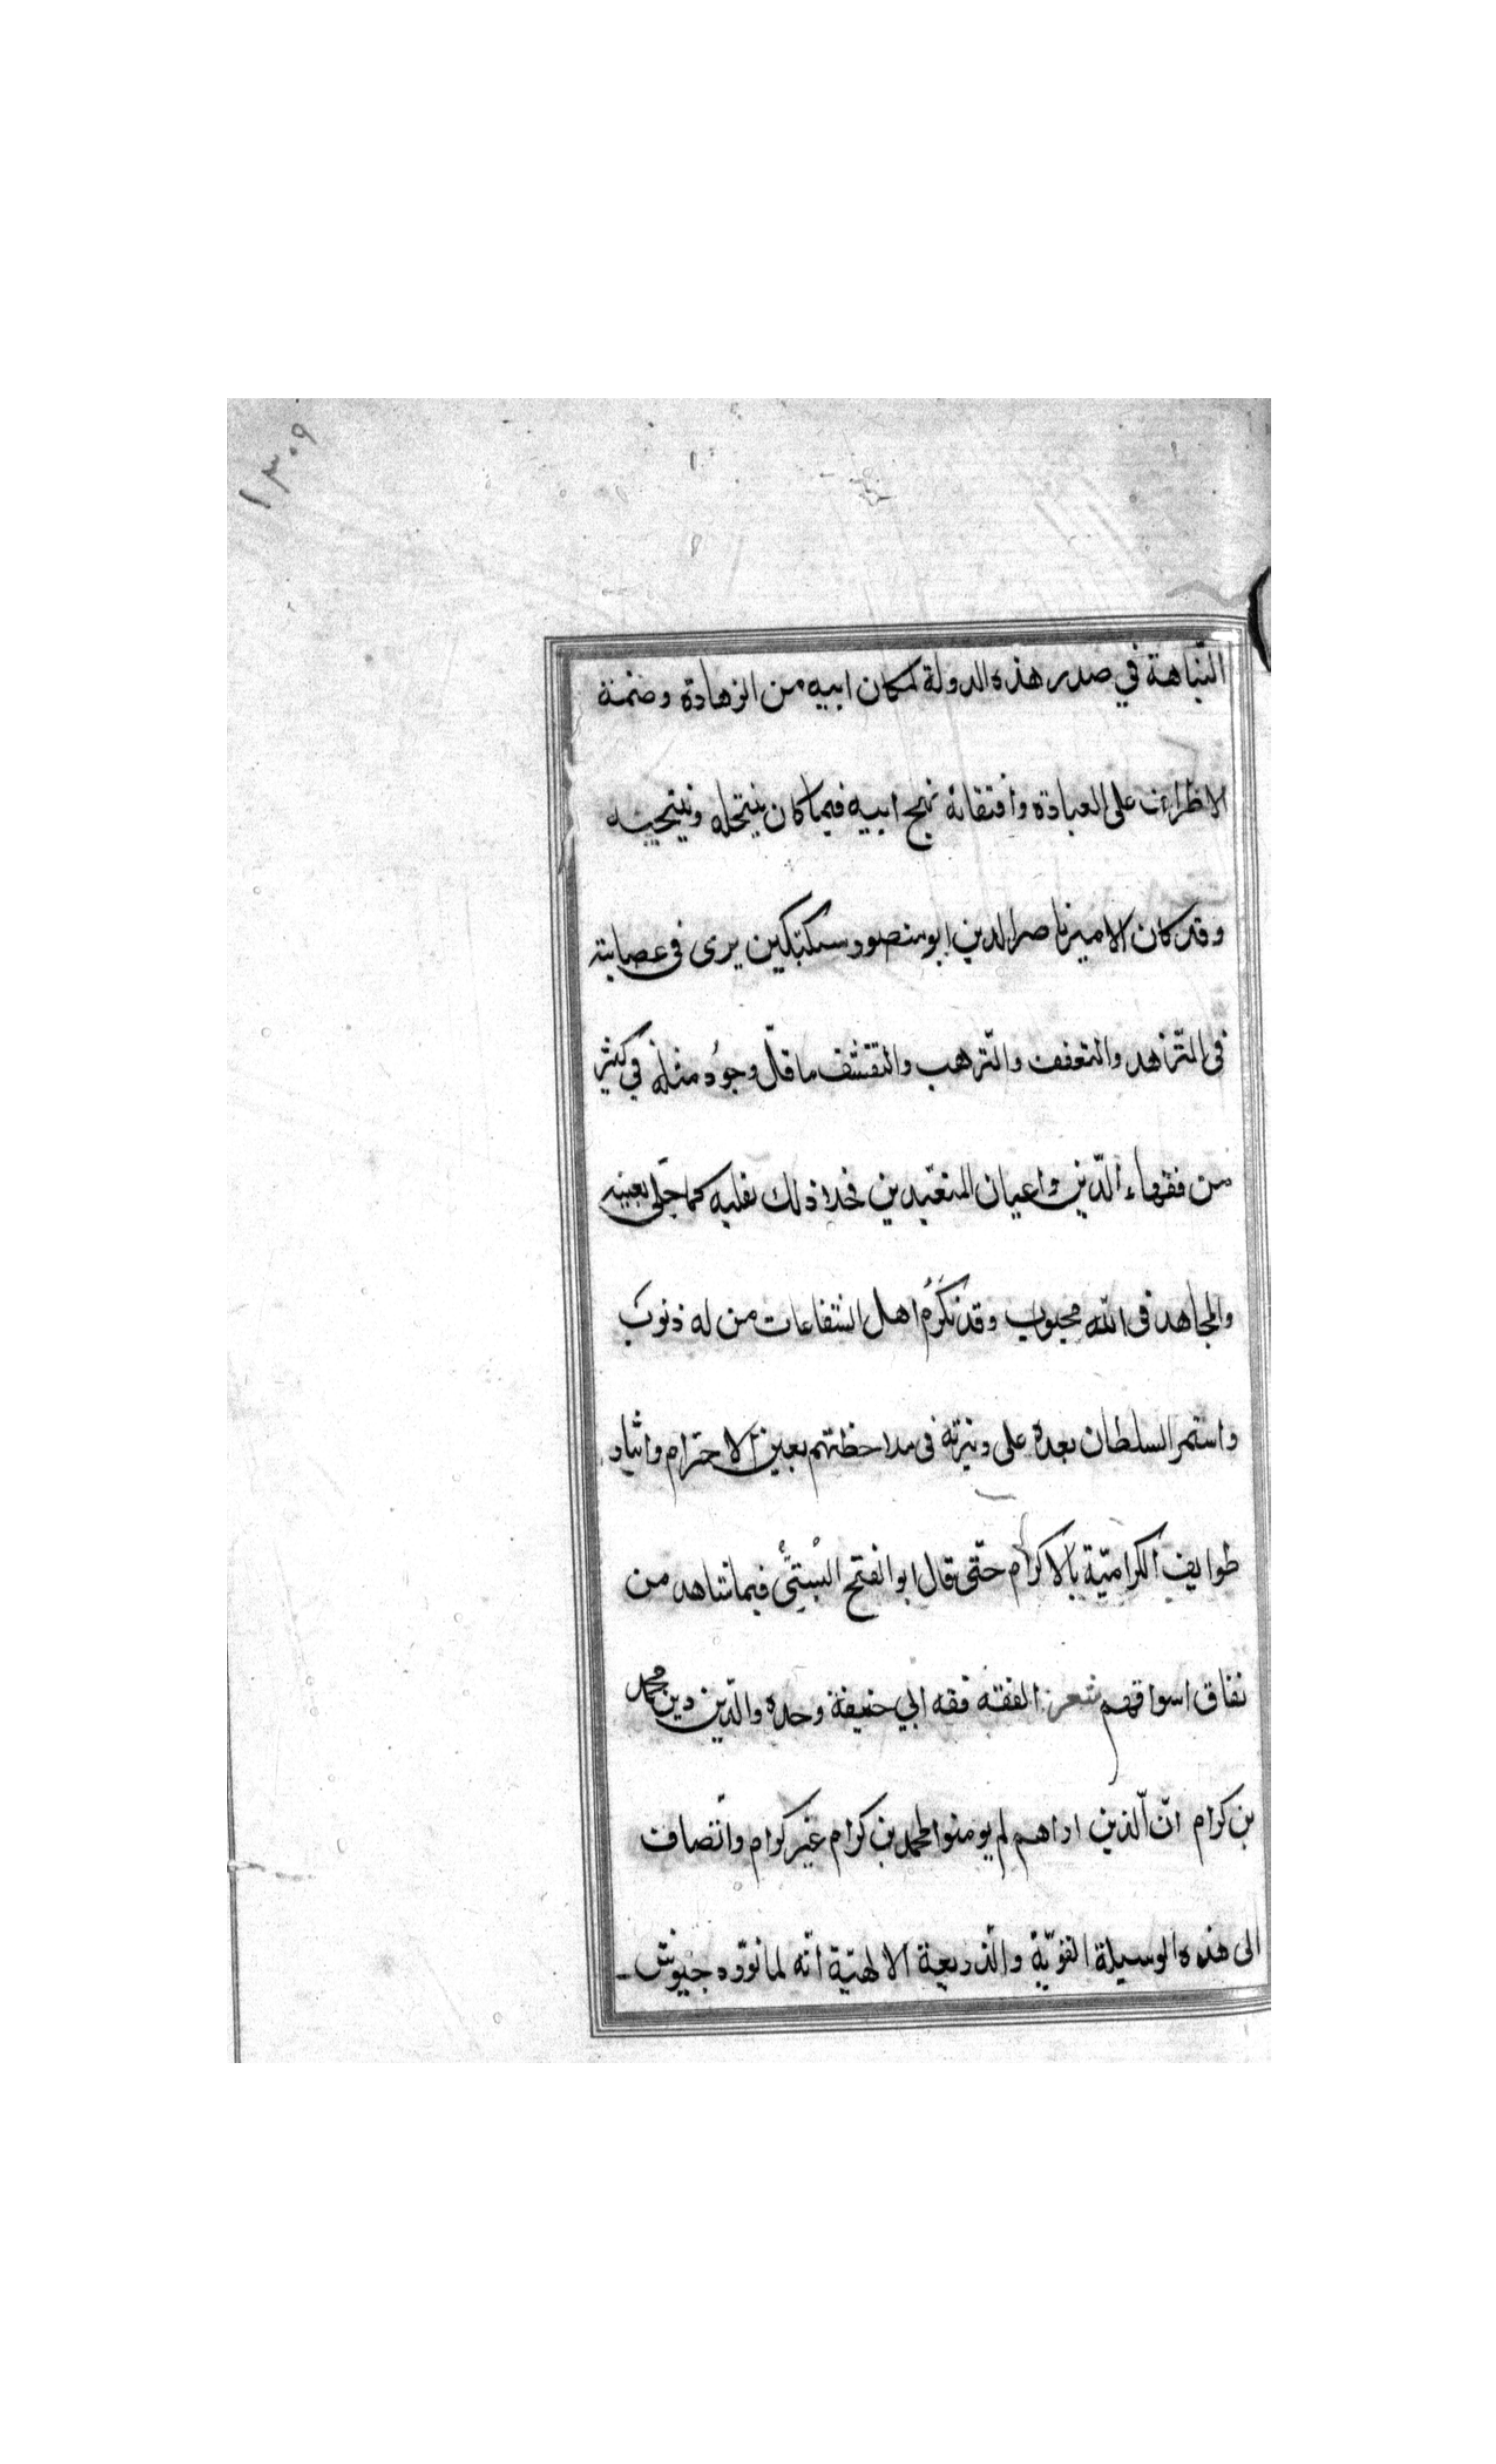 ١٣٠٩
النّباهة في صدر هذه الدولة لمكان ابيه من الزهادة وضمنة
الاظراف على العبادة واقتفائه نهج ابيه فيما كان ينتحله وينتحيه
وقد كان الامير ناصر الدين ابو منصور سبكتكين يرى في عصابته
في التّزهد والتعفف والتّرهب والتقشف ما قلّ وجود مثله في كثير
من فقهاء الدّين واعيان المتعبّدين فحلا ذلك بقلبه كما حلى بعينه
والمجاهد في اللّه محبوب وقد تكرم اهل الشفاعات من له ذنوب
واستمر السلطان بعده على وتيرته في ملاحظتهم بعين الاحترام وايثار
طوايف الكراميّة بالاكرام حتّى قال ابو الفتح البستيّ فيما شاهد من
نفاق اسواقهم شعر الفقه فقه ابي حنيفة وحده والدّين دين محمد
بن كرام انّ الّذين اراهم لم يومنوا لمحمد بن كرام غير كرام وانضاف
الى هذه الوسيلة القويّة والذريعة الالهيّة انّه لما تورّد جيوش